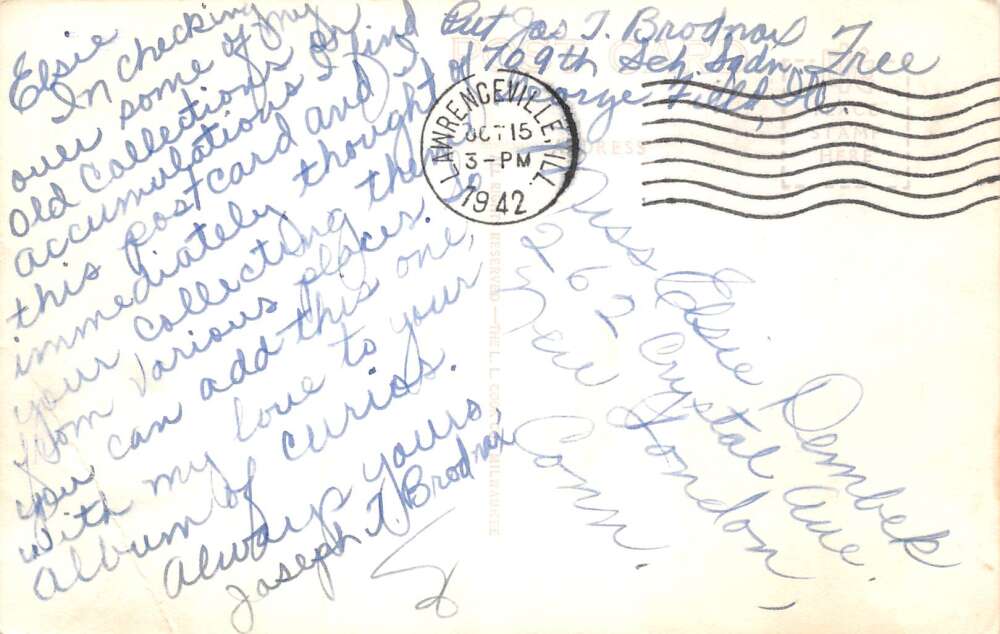 Elsie
In checking
over some of my
old collections or
accumulations I find
this postcard and I
immediately thought of
your collecting them
from various places. So
you can add this one,
with my love to your
album of curios.
Always yours,
Joseph T. Brodnax
Pvt Jas T. Brodnax Free
709th Sch. Sqdn
George Field, Ill.
LAWRENCEVILLE, ILL.
OCT 15
3-PM
1942
POST CARD
ADDRESS
STAMP
HERE
Miss Elsie Dembek
262 Crystal Ave
New London,
Conn.
RESERVED—THE L. L. COOK
MILWAUKEE